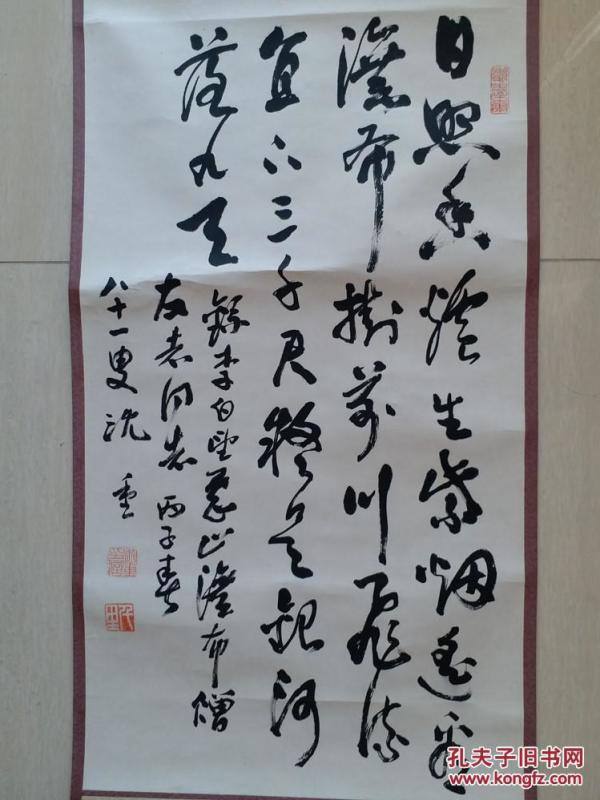 日照香爐生紫烟遙看
瀑布掛前川飛流
直下三千尺疑是銀河
落九天
錄李白望廬山瀑布贈
友同志 丙子春
八十一叟沈重
孔夫子旧书网
www.kongfz.com